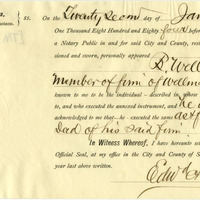 ss. On the Twenty Secon day of Jan
One Thousand Eight Hundred and Eighty four
a Notary Public in and for said City and County, resi
sioned and sworn, personally appeared
B. Well
Member of firm of Wellman
known to me to be the individual described
and who executed the annexed instrument, and he
acknowledged to me that he executed the same as the act &
Deed of his said firm
In Witness Whereof, I have hereunto
Official Seal, at my office in the City and County of S
year last above written.
Edw